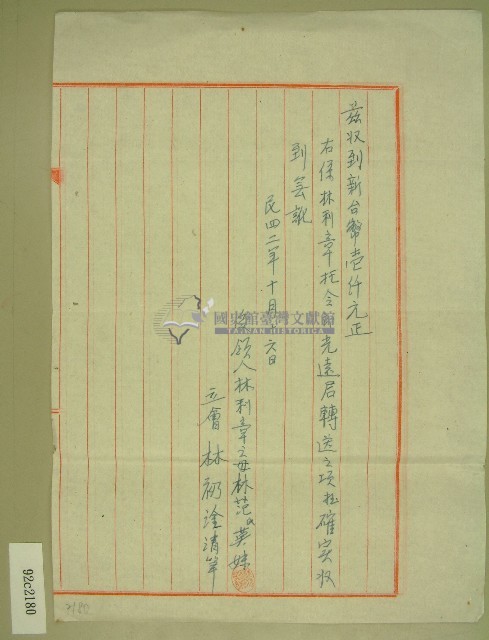 茲收到新台幣壹仟元正
右係林利章托令光遠君轉送之項經確实收
到無訛
民四二年十月六日
領人林利章之母林范氏英妹
立會 林初淦清筆
國史館臺灣文獻館
TAIWAN HISTORICA
92c2180
2180